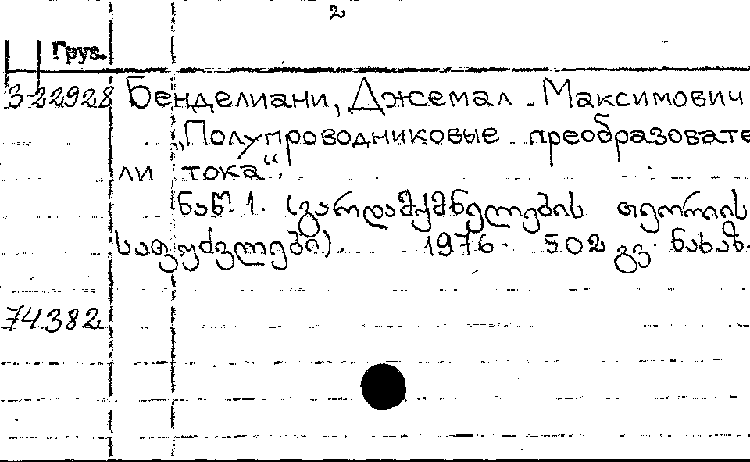 2
Груз.
3-22928 Бенделиани, Джемал Максимович
„Полупроводниковые преобразовате
ли тока“.
ნაწ. 1. (გარდამქმნელების თეორიის
საფუძვლები). 1976. 502 გვ. ნახაზ.
74.382